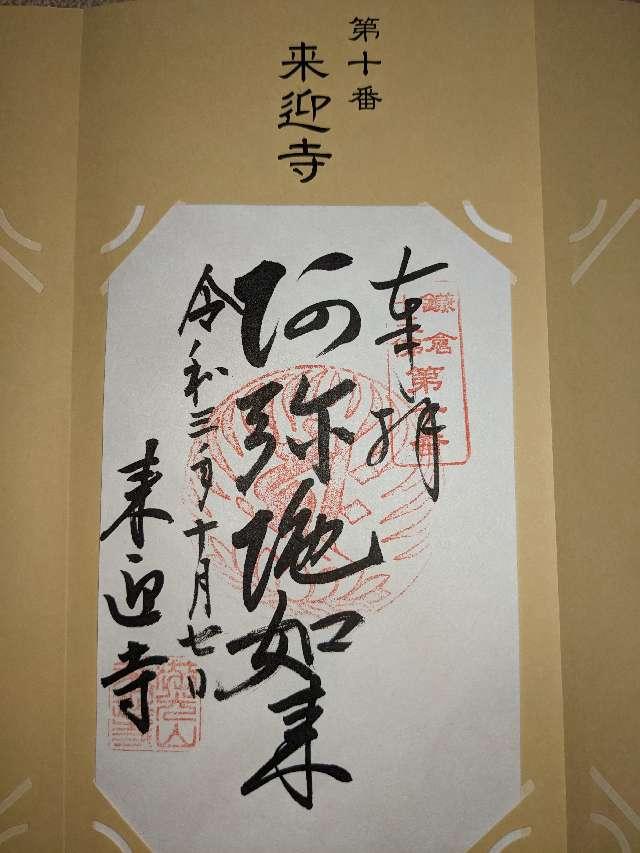 第十番
来迎寺
奉拝
鎌倉
第十番
阿弥陀如来
令和三年十月七日
来迎寺